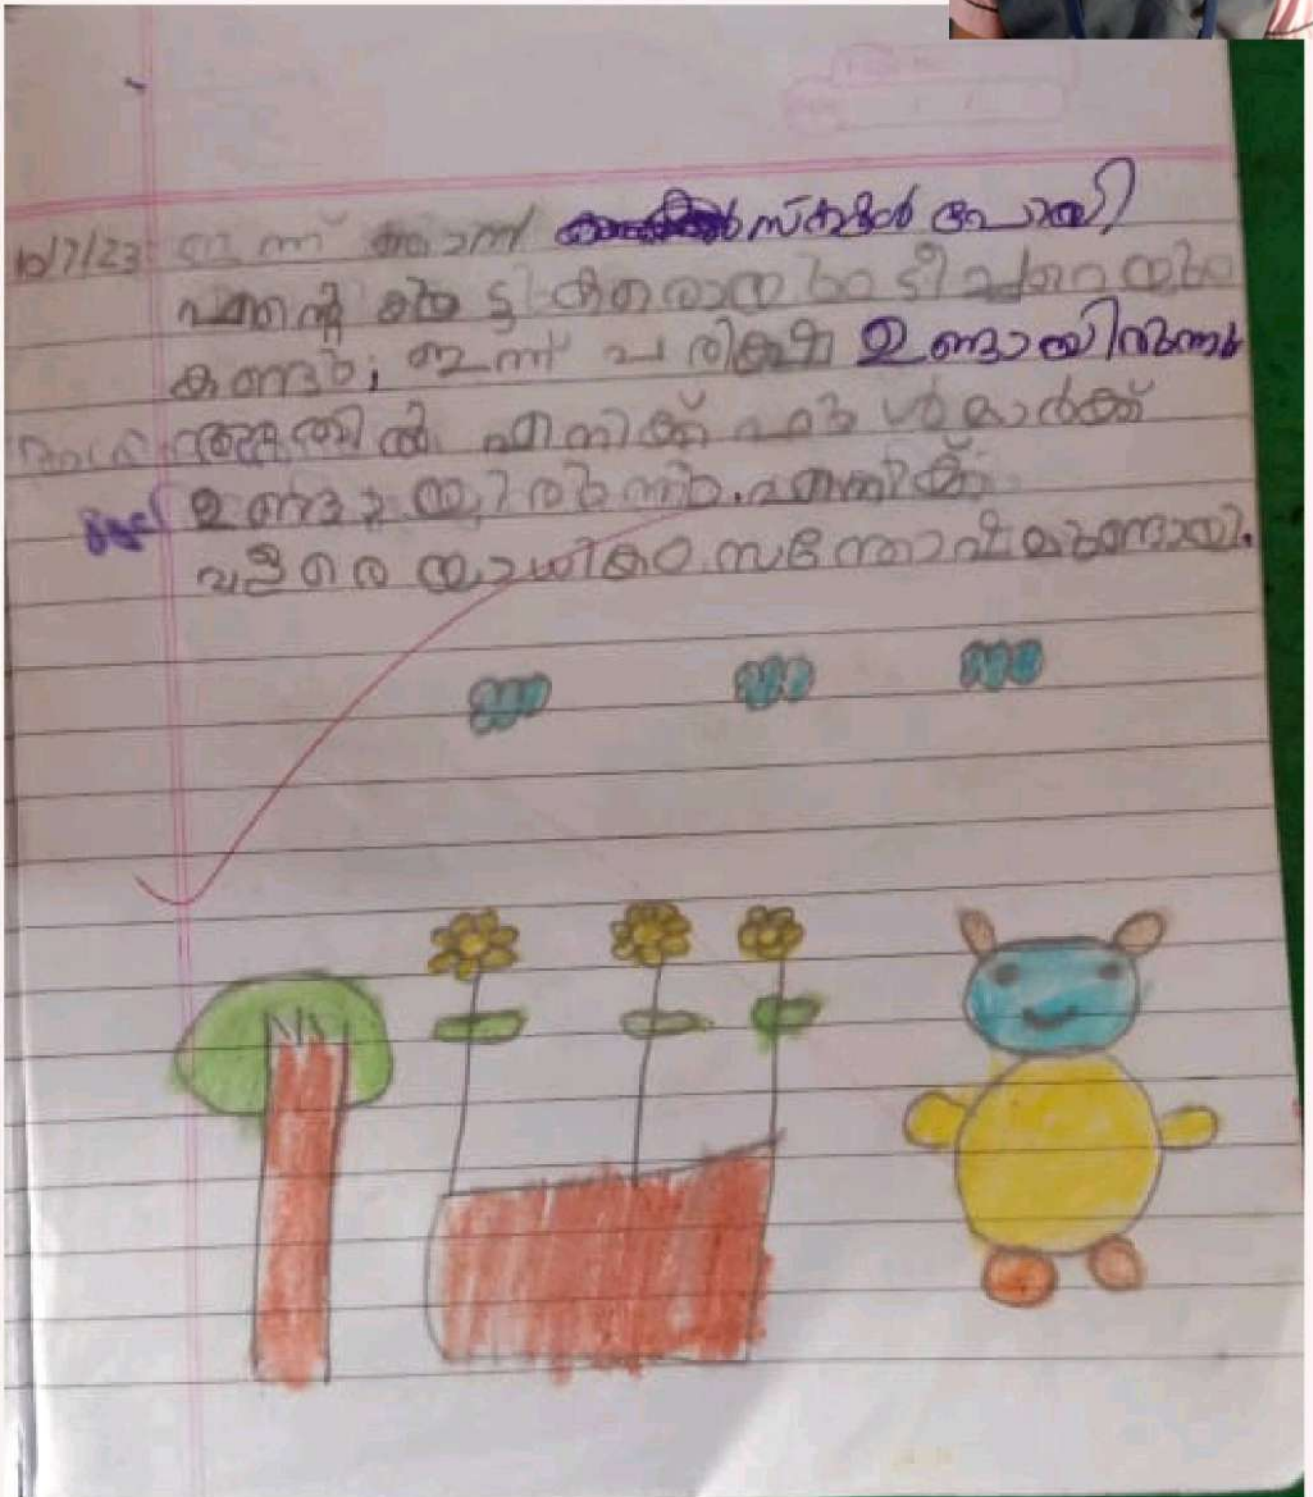 10/7/23 ഇന്ന് ഞാൻ സ്കൂളിൽ പോയി
എന്റെ കൂട്ടുകാരെയും ടീച്ചറെയും
കണ്ടു; ഇന്ന് പരിക്ഷ ഉണ്ടായിരുന്നു
അതിൽ എനിക്ക് ഫുൾ മാർക്ക്
ഉണ്ടായിരുന്നു. എനിക്ക്
വളരെയധികം സന്തോഷമുണ്ടായി.